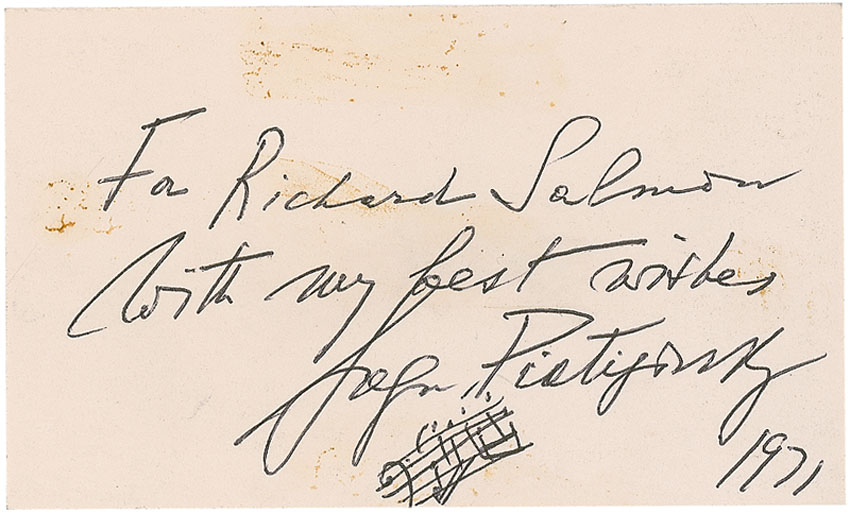 For Richard Salmon
With my best wishes
Gregor Piatigorsky
1971